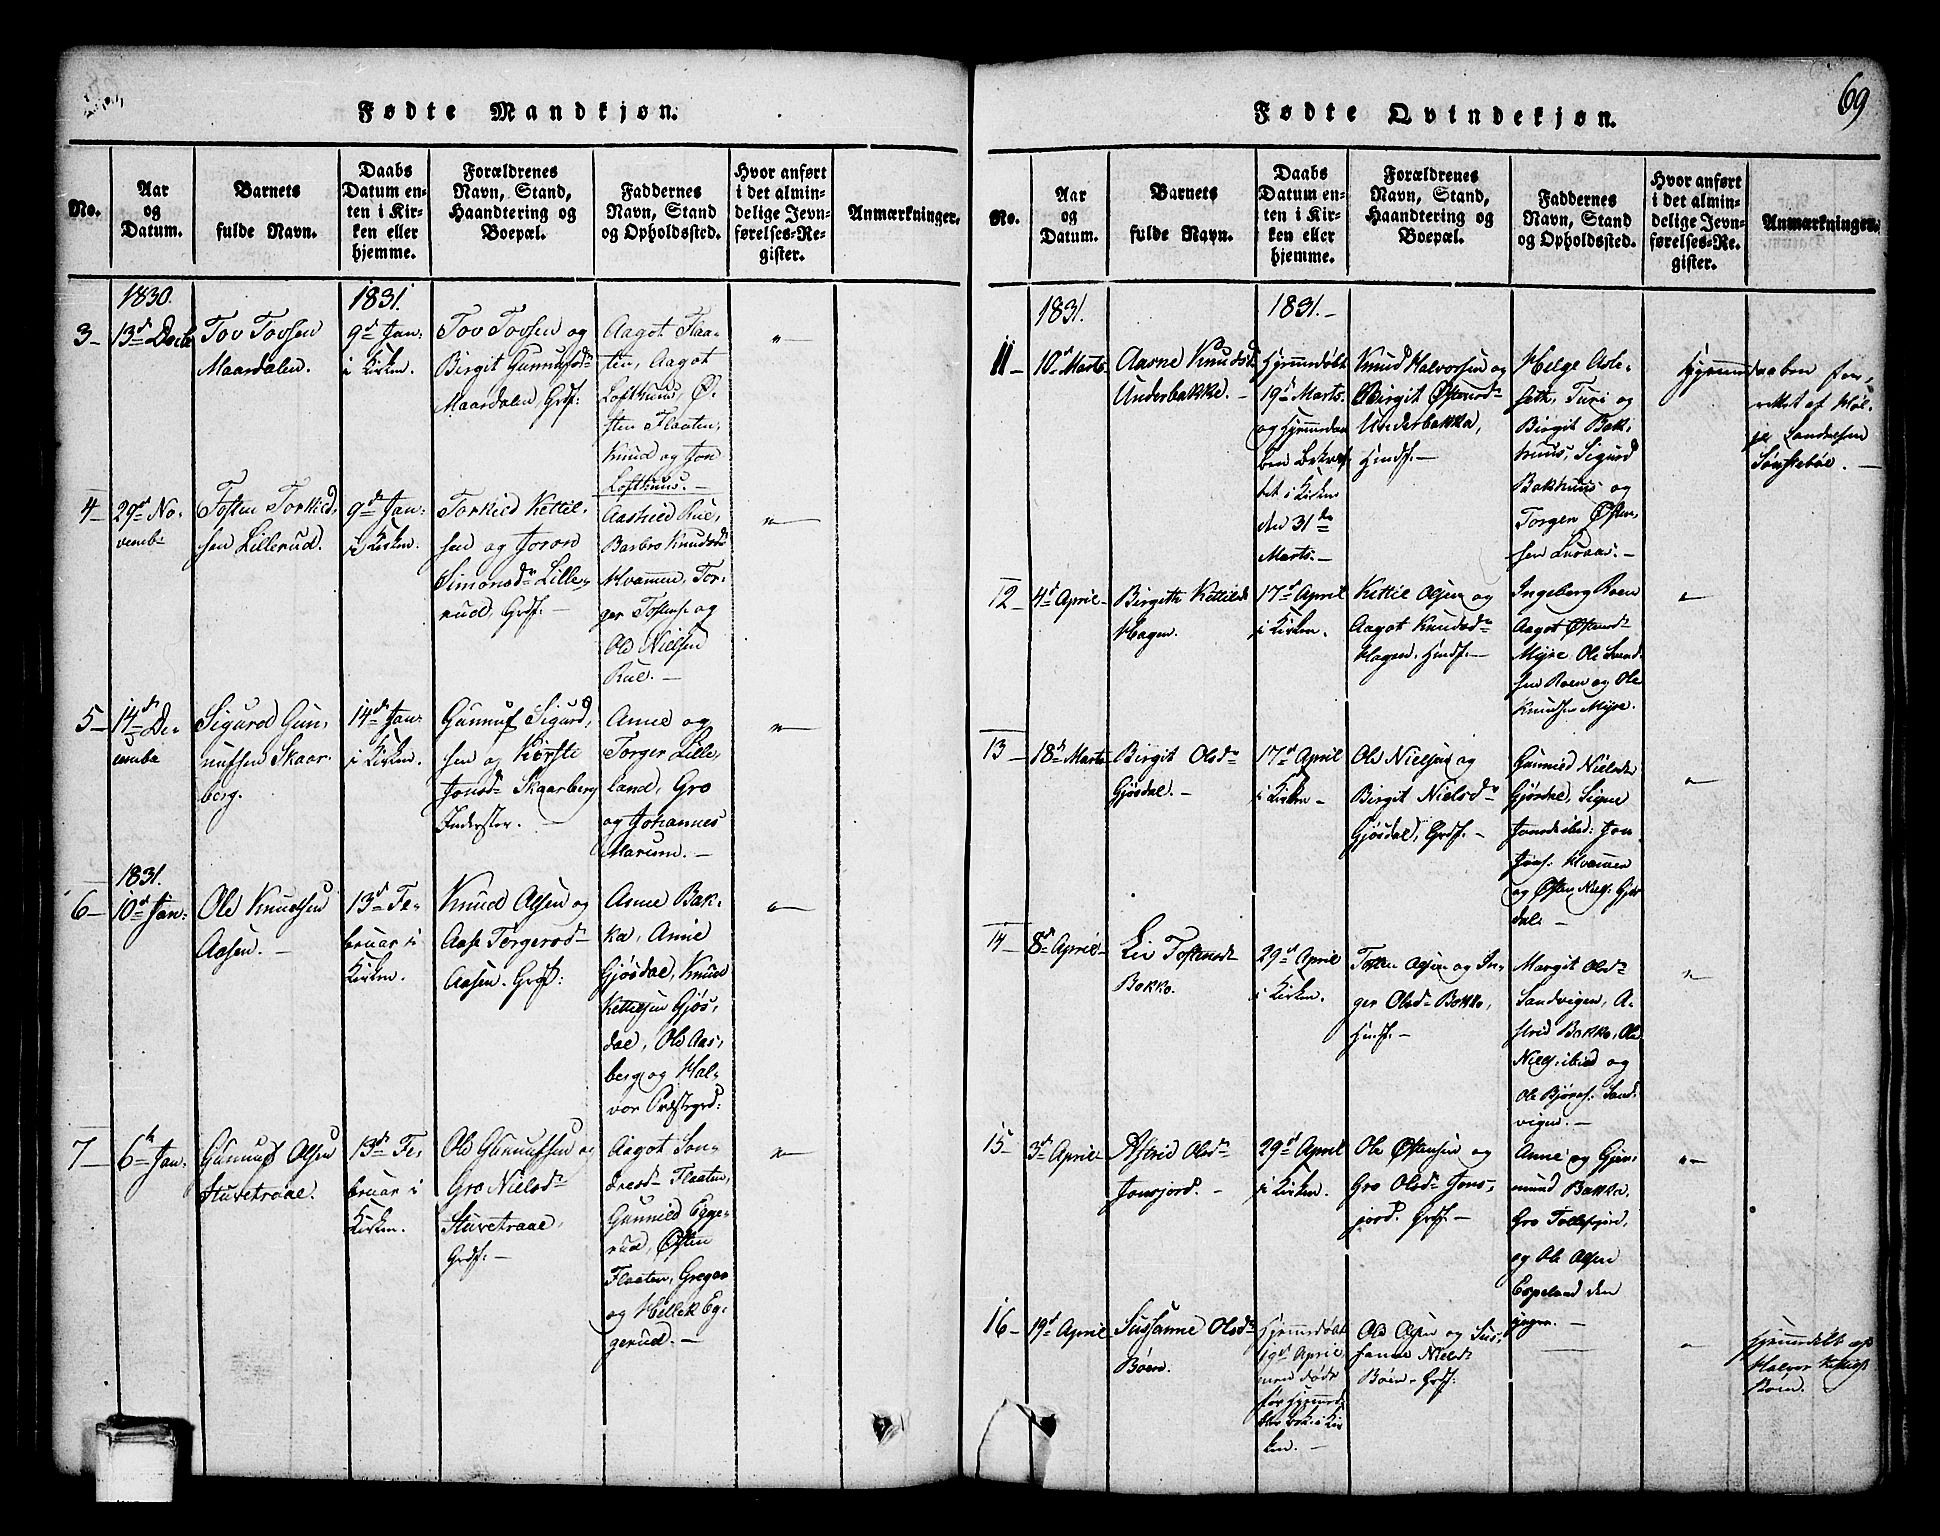 69
Fødte Mandkjøn.
No.
Aar
og
Datum.
Barnets
fulde Navn.
Daabs
Datum en-
ten i Kir-
ken eller
hjemme.
Forældrenes
Navn, Stand,
Haandtering og
Boepæl.
Faddernes
Navn, Stand
og Opholdssted.
Hvor anført
i det almin-
delige Jevn-
førelses-Re-
gister.
Anmærkninger.
1830.
3
13de Decbr
Tov Tovsen
Maardalen.
1831.
9de Jan-
i Kirken.
Tov Tovsen og
Birgit Gunnufsdr
Maardalen Grdf:
Aagot Flaa-
ten, Aagot
Lofthuus, Ø-
sten Flaaten,
Knud og Jon
Lofthuus.
4
29de No-
vembr
Tosten Torkild-
sen Lillerud.
9de Jan-
i Kirken.
Torkild Kettil-
sen og Joron
Simonsdr Lille-
rud, Grdf.
Aashild Rue,
Barbro Knudsdr
Kvammen, Tor-
ger Tostens. og
Ole Nielsen
Rue.
5
14de De-
cembr
Sigurd Gun-
nufsen Skaar-
berg.
14de Jan-
i Kirken.
Gunnuf Sigurd-
sen og Kirsti
Jonsdr Skaarberg
Inderster.
Anne og
Torger Lille-
land, Gro
og Johannes
Marum.
1831.
6
10de Jan-
Ole Knudsen
Aasen.
13de Fe-
bruar i
Kirken.
Knud Olsen og
Aase Torgersd-
Aasen. Grdf:
Anne Bak-
ka, Anne
Gjøsdal, Knud
Kettilsen Gjøs-
dal, Ole Aas-
berg og Hal-
vor Præstegrd:
7
6te Jan-
Gunnuf Olsen
Stuvetraae.
13de Fe-
bruar i
Kirken.
Ole Gunnufsen og
Gro Nielsdr
Stuvetraae,
Grdf.
Aagot Son-
dresdr Flaaten,
Gunnild Egge-
rud, Østen
Flaaten, Gregar
og Hellek Eg-
gerud.
Fødte Qvindekjøn.
No.
Aar
og
Datum.
Barnets
fulde Navn.
Daabs
Datum en-
ten i Kir-
ken eller
hjemme.
Forældrenes
Navn, Stand,
Haandtering og
Boepæl.
Faddernes
Navn, Stand
og Opholdssted.
Hvor anført
i det almin-
delige Jevn-
førelses-Re-
gister.
Anmærkninger.
1831.
11
10de Marts
Aasne Knudsd.
Underbakke.
1831.
Hjemmedøbt
19de Marts
og Hjemmedaa-
ben bekræf-
tet i Kirken
den 31te
Marts.
Knud Halvorsen og
Birgit Østensdr
Underbakka,
Huusf.
Helge Asle-
seth, Turi og
Birgit Bak-
huus, Sigurd
Bakhuus og
Torgen Østen-
sen Luraas.
Hjemmedaaben for-
rettet af Høl-
je Sondresen
Sønstebøe.
12
4de April
Birgith Kettilsd
Hagen.
17de April
i Kirken.
Kettil Olsen og
Aagot Knudsdr
Hagen. Huusf.
Ingeberg Roen
Aagot Østensdr
Myre Ole Svend-
sen Roen og Ole
Knudsen Myre.
13
18de Marts
Birgit Olsdr
Gjøsdal.
17de April
i Kirken
Ole Nielsen og
Birgit Nielsdr
Gjøsdal, Grdf.
Gunnild Nielsdr
Gjøsdal, Signe
Jonsdr ibid: Jon
Jons. Kvammen
og Østen Niels. Gjøs-
dal.
14
8de April
Liv Tostensdr
Bakka.
29de April
i Kirken.
Tosten Olsen og In-
ger Olsdr Bakka,
Huusf.
Margit Olsdr
Sandvigen, A-
strid Bakka, Ole
Niels. ibid og
Ole Bjørns. Sand-
vigen.
15
3de April
Astrid Olsdr
Jonsjord.
29de April
i Kirken.
Ole Østensen og
Gro Olsdr Jons-
jord. Grdf.
Anne og Gjer-
mund Bakka.
Gro Tollefsjord,
og Ole Olsen
Espeland den
yngre.
16
19de April
Sussanne Olsdr
Bøen.
Hjemmedøbt
19de April
men døde
før Hjemmed-
blev bek. i Kir-
ken.
Ole Olsen og Sus-
sanne Nielsdr
Bøen. Grdf.
Hjemmedøbt af
Halvor Kettils.
Bøen.